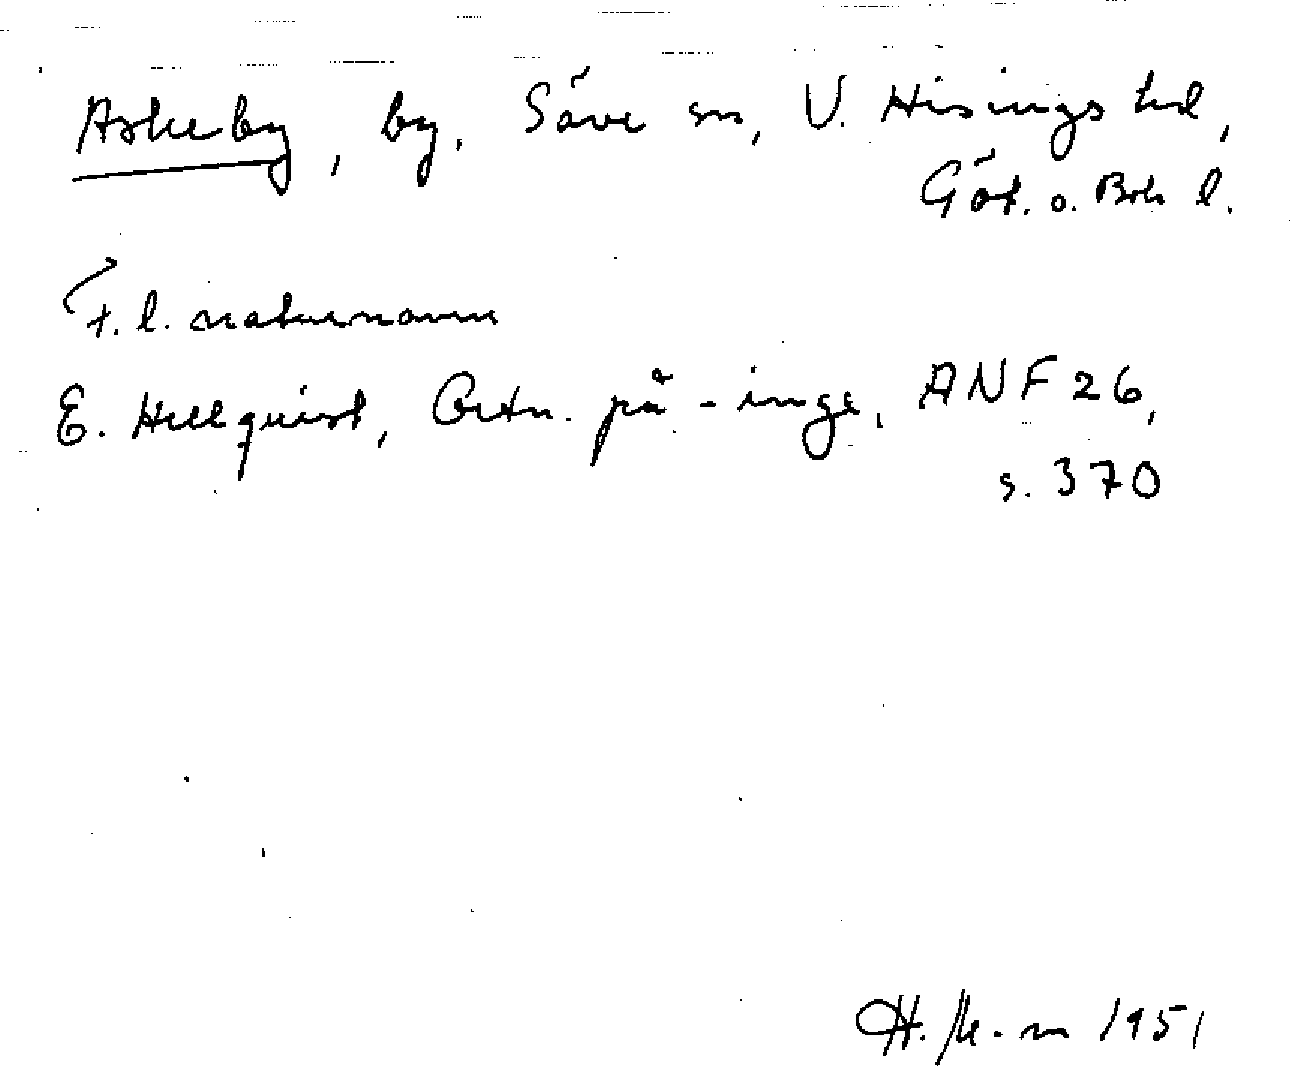 Askeby, by, Säve sn, V. Hisings hd,
Göt. o. Boh l.
F. l. naturnamn
E. Hellquist, Ortn. på -inge, ANF 26,
s. 370
H. 1951